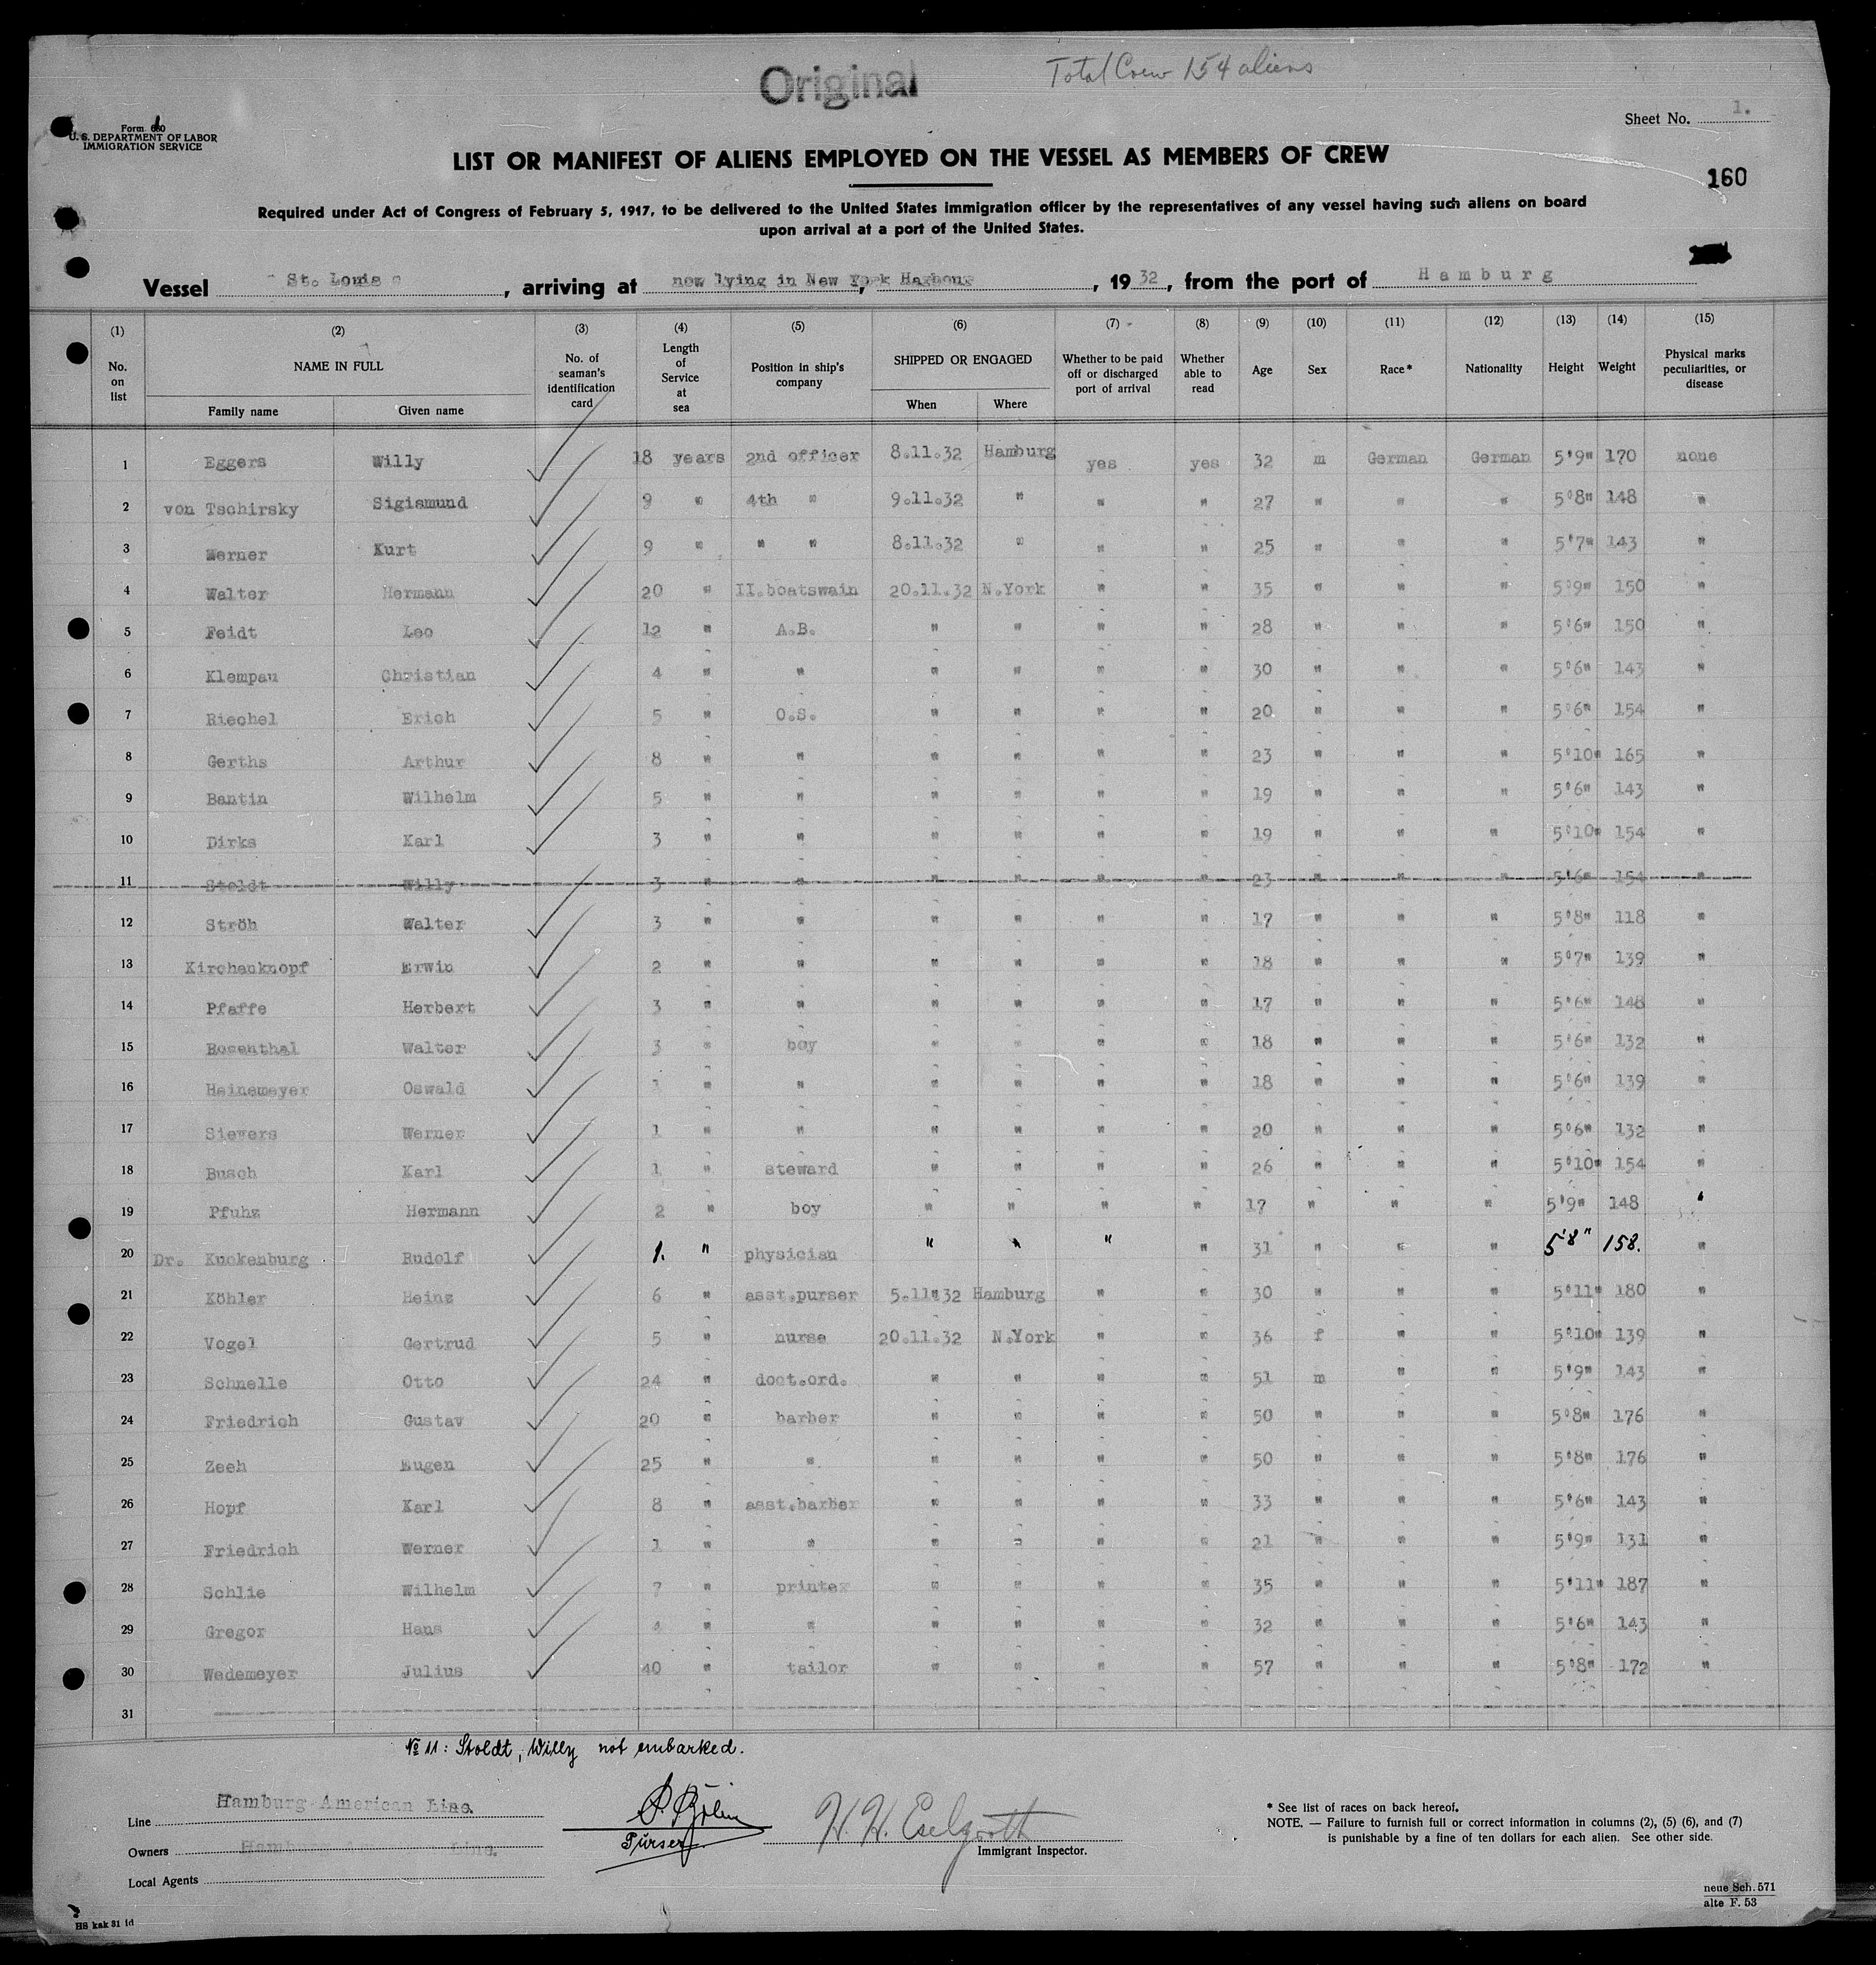 Original
Total Crew 154 aliens
Sheet No. 1.
U. S. DEPARTMENT OF LABOR
IMMIGRATION SERVICE
LIST OR MANIFEST OF ALIENS EMPLOYED ON THE VESSEL AS MEMBERS OF CREW
160
Required under Act of Congress of February 5, 1917, to be delivered to the United States immigration officer by the representatives of any vessel having such aliens on board
upon arrival at a port of the United States.
Vessel St. Louis, arriving at now lying in New York Harbour, 1932, from the port of Hamburg
(1) (2) (3) (4) (5) (6) (7) (8) (9) (10) (11) (12) (13) (14) (15)
No. on list NAME IN FULL Family name Given name No. of seaman's identification card Length of Service at sea Position in ship's company SHIPPED OR ENGAGED When Where Whether to be paid off or discharged port of arrival Whether able to read Age Sex Race* Nationality Height Weight Physical marks peculiarities, or disease
1 Eggers Willy 18 years 2nd officer 8.11.32 Hamburg yes yes 32 m German German 5'9" 170 none
2 von Tschirsky Sigismund 9 " 4th " 9.11.32 " " " 27 " " " 5'8" 148 "
3 Werner Kurt 9 " " " 8.11.32 " " " 25 " " " 5'7" 143 "
4 Walter Hermann 20 " II.boatswain 20.11.32 N.York " " 35 " " " 5'9" 150 "
5 Feidt Leo 12 " A.B. " " " " 28 " " " 5'6" 150 "
6 Klempau Christian 4 " " " " " " 30 " " " 5'6" 143 "
7 Riechel Erich 5 " O.S. " " " " 20 " " " 5'6" 154 "
8 Gerths Arthur 8 " " " " " " 23 " " " 5'10" 165 "
9 Bantin Wilhelm 5 " " " " " " 19 " " " 5'6" 143 "
10 Dirks Karl 3 " " " " " " 19 " " " 5'10" 154 "
11 Stoldt Willy 3 " " " " " " 23 " " " 5'6" 154 "
12 Ströh Walter 3 " " " " " " 17 " " " 5'8" 118 "
13 Kirchenknopf Erwin 2 " " " " " " 18 " " " 5'7" 139 "
14 Pfaffe Herbert 3 " " " " " " 17 " " " 5'6" 148 "
15 Rosenthal Walter 3 " boy " " " " 18 " " " 5'6" 132 "
16 Heinemeyer Oswald 1 " " " " " " 18 " " " 5'6" 139 "
17 Sievers Werner 1 " " " " " " 20 " " " 5'6" 132 "
18 Busch Karl 1 " steward " " " " 26 " " " 5'10" 154 "
19 Pfuhz Hermann 2 " boy " " " " 17 " " " 5'9" 148 "
20 Dr. Kuckenburg Rudolf 1. " physician " " " " 31 " " " 5'8" 158. "
21 Köhler Heinz 6 " asst.purser 5.11.32 Hamburg " " 30 " " " 5'11" 180 "
22 Vogel Gertrud 5 " nurse 20.11.32 N.York " " 36 f " " 5'10" 139 "
23 Schnelle Otto 24 " doct.ord. " " " " 51 m " " 5'9" 143 "
24 Friedrich Gustav 20 " barber " " " " 50 " " " 5'8" 176 "
25 Zeeh Eugen 25 " " " " " " 50 " " " 5'8" 176 "
26 Hopf Karl 8 " asst.barber " " " " 33 " " " 5'6" 143 "
27 Friedrich Werner 1 " " " " " " 21 " " " 5'9" 131 "
28 Schlie Wilhelm 7 " printer " " " " 35 " " " 5'11" 187 "
29 Gregor Hans 4 " " " " " " 32 " " " 5'6" 143 "
30 Wedemeyer Julius 40 " tailor " " " " 57 " " " 5'8" 172 "
31
№ 11: Stoldt, Willy not embarked.
Line Hamburg-American Line.
Purser
Immigrant Inspector.
Owners Hamburg Line.
Local Agents
* See list of races on back hereof.
NOTE. — Failure to furnish full or correct information in columns (2), (5) (6), and (7)
is punishable by a fine of ten dollars for each alien. See other side.
neue Sch. 571
alte F. 53
HS kak 31 fd